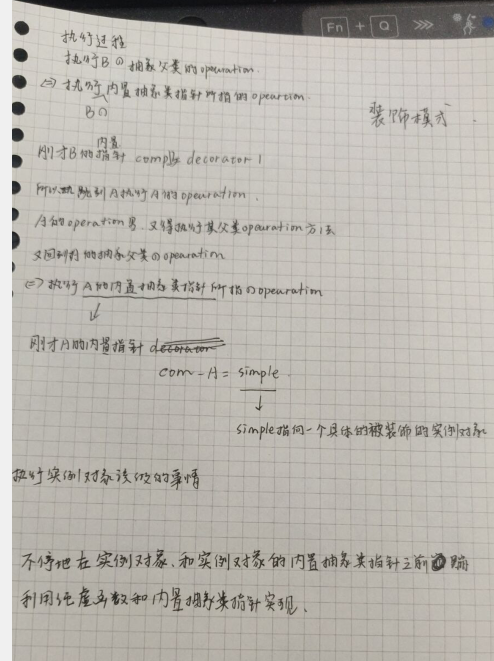 Fn + Q >>>
执行过程
装饰模式.
执行B的抽象父类的opeuration.
⇔ 执行内置抽象类指针所指的opeartion.
B的
刚才B的内置指针 comp decorator 1
所以跳到A执行A的opeuration.
A的operation里,又得执行其父类opeuration方法
又回到A的抽象父类的opeuration
⇔ 执行A的内置抽象类指针所指的opeuration
刚才A的内置指针
com-A = simple.
simple指向一个具体的被装饰的实例对象
执行实例对象该做的事情
不停地在实例对象、和实例对象的内置抽象类指针之前
利用纯虚函数和内置抽象类指针实现.